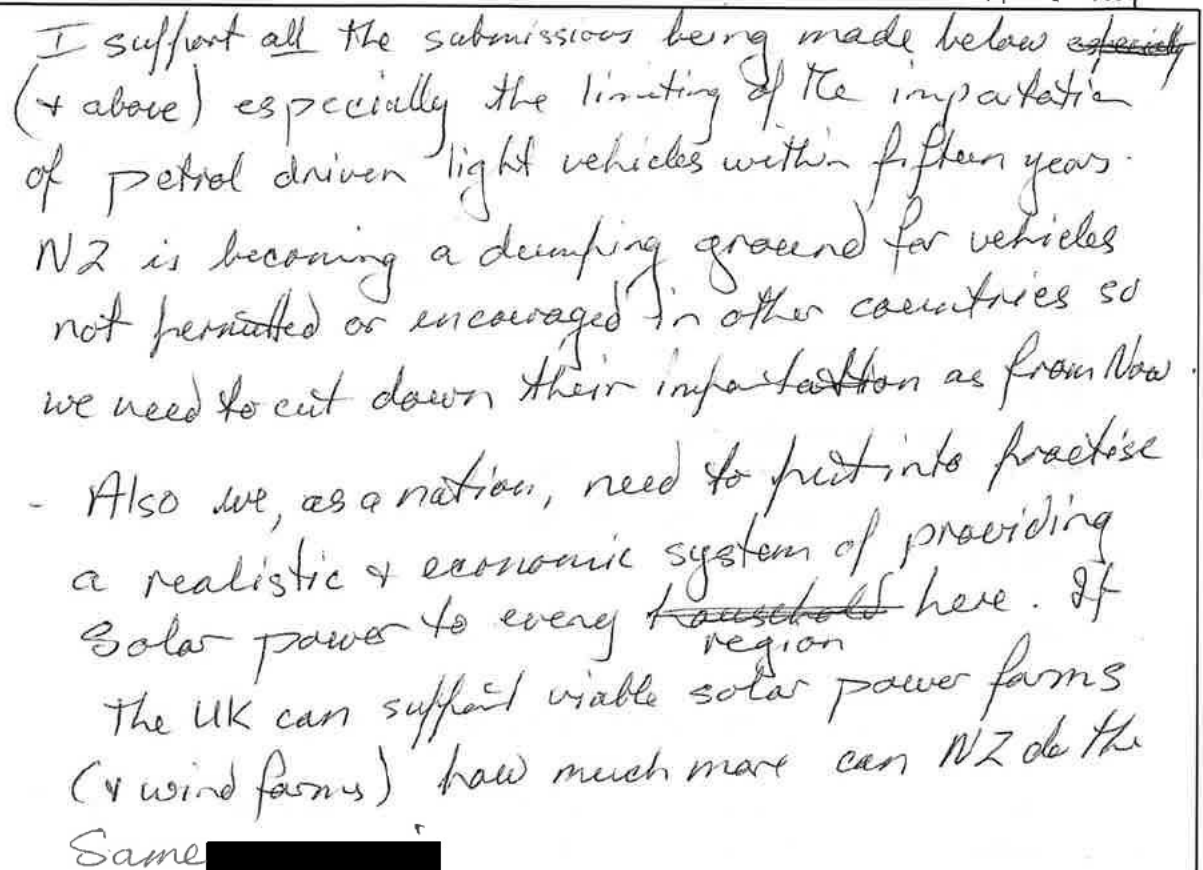 I support all the submissions being made below especially
(+ above) especially the limiting of the importation
of petrol driven light vehicles within fifteen years.
NZ is becoming a dumping ground for vehicles
not permitted or encouraged in other countries so
we need to cut down their importation as from Now.
- Also we, as a nation, need to put into practise
a realistic & economic system of providing
Solar power to every household here. If
region
the UK can support viable solar power farms
(& wind farms) how much more can NZ do the
Same